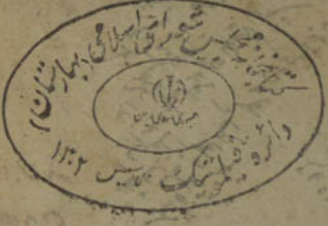 کتابخانه مجلس شورای اسلامی بهارستان ۱
جمهوری اسلامی ایران
دائره فیلاتلیک تاسیس ۱۳۰۲